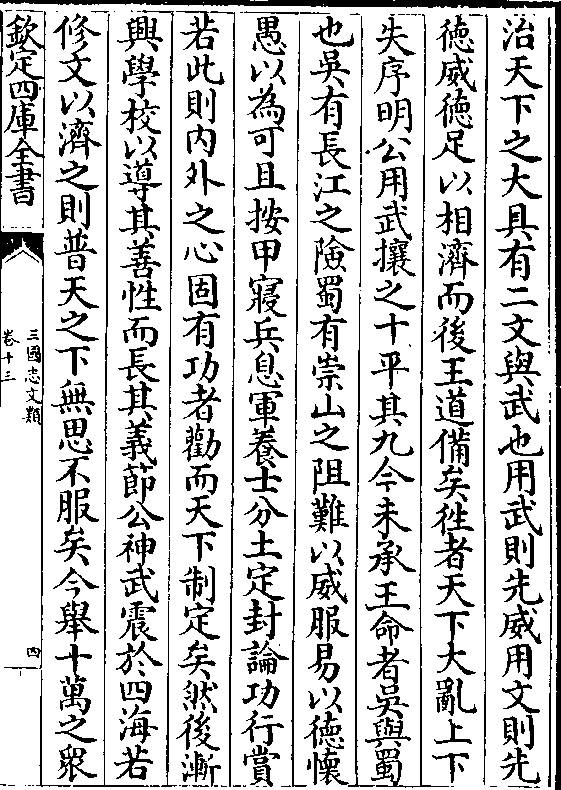 治天下之大具有二文與武也用武則先威用文則先
徳威徳足以相濟而後王道備矣徃者天下大亂上下
失序明公用武攘之十平其九今未承王命者吳與蜀
也吳有長江之險蜀有崇山之阻難以威服易以徳懷
愚以為可且按甲寢兵息軍養士分土定封論功行賞
若此則内外之心固有功者勸而天下制定矣然後漸
興學校以導其善性而長其義節公神武震於四海若
修文以濟之則普天之下無思不服矣今舉十萬之衆
欽定四庫全書
三國志文類
卷十三
四